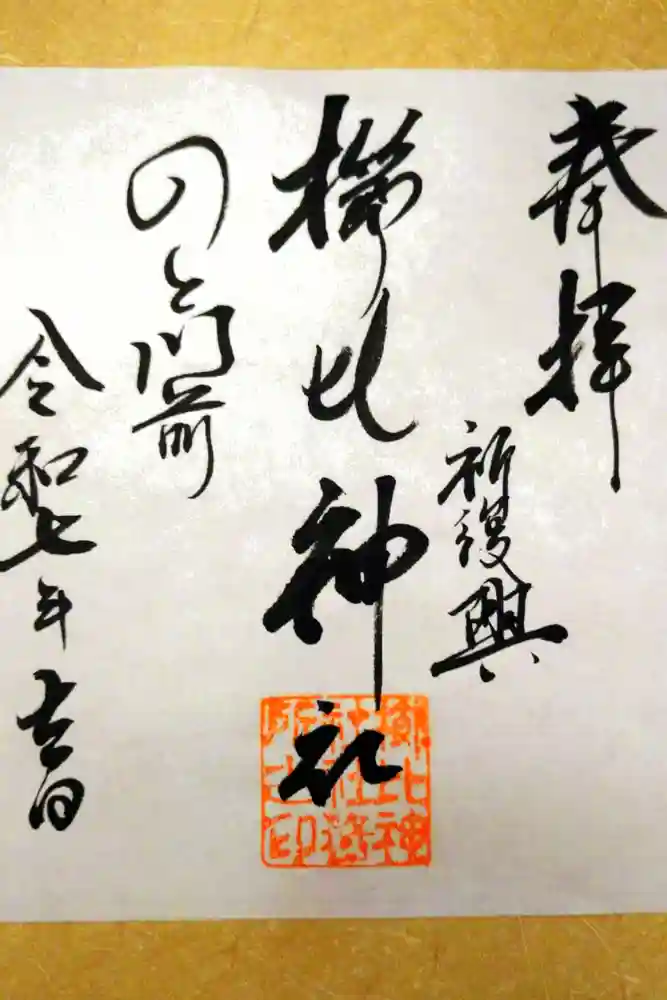 奉拜
祈復興
櫛比神社
の と 門前
令和七年吉日
櫛比神
社務
所之印